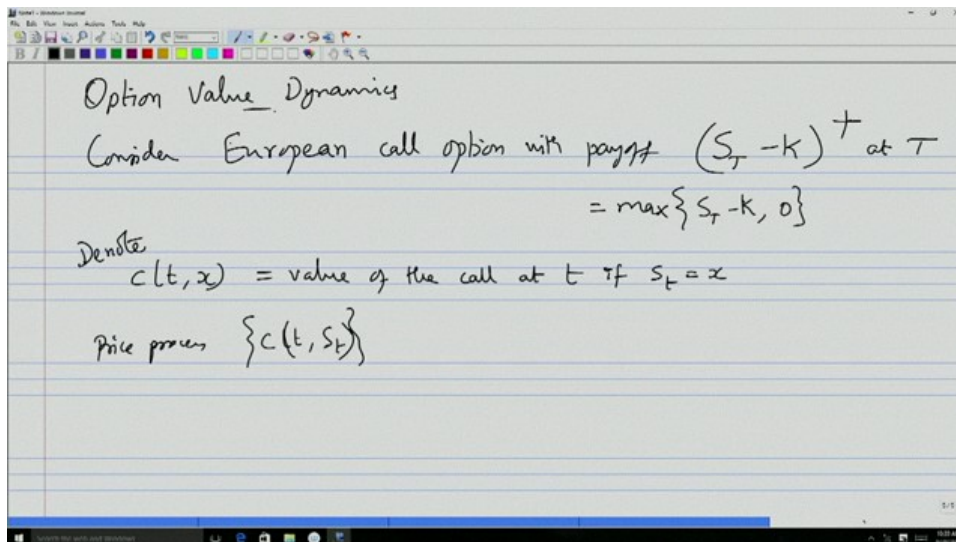 File Edit View Insert Actions Tools Help
B I
Option Value Dynamics
Consider European call option with payoff (S_T - K)^+ at T
= max{S_T - K, 0}
Denote
c(t, x) = value of the call at t if S_t = x
Price process {c(t, S_t)}
5/5
Search the web and Windows